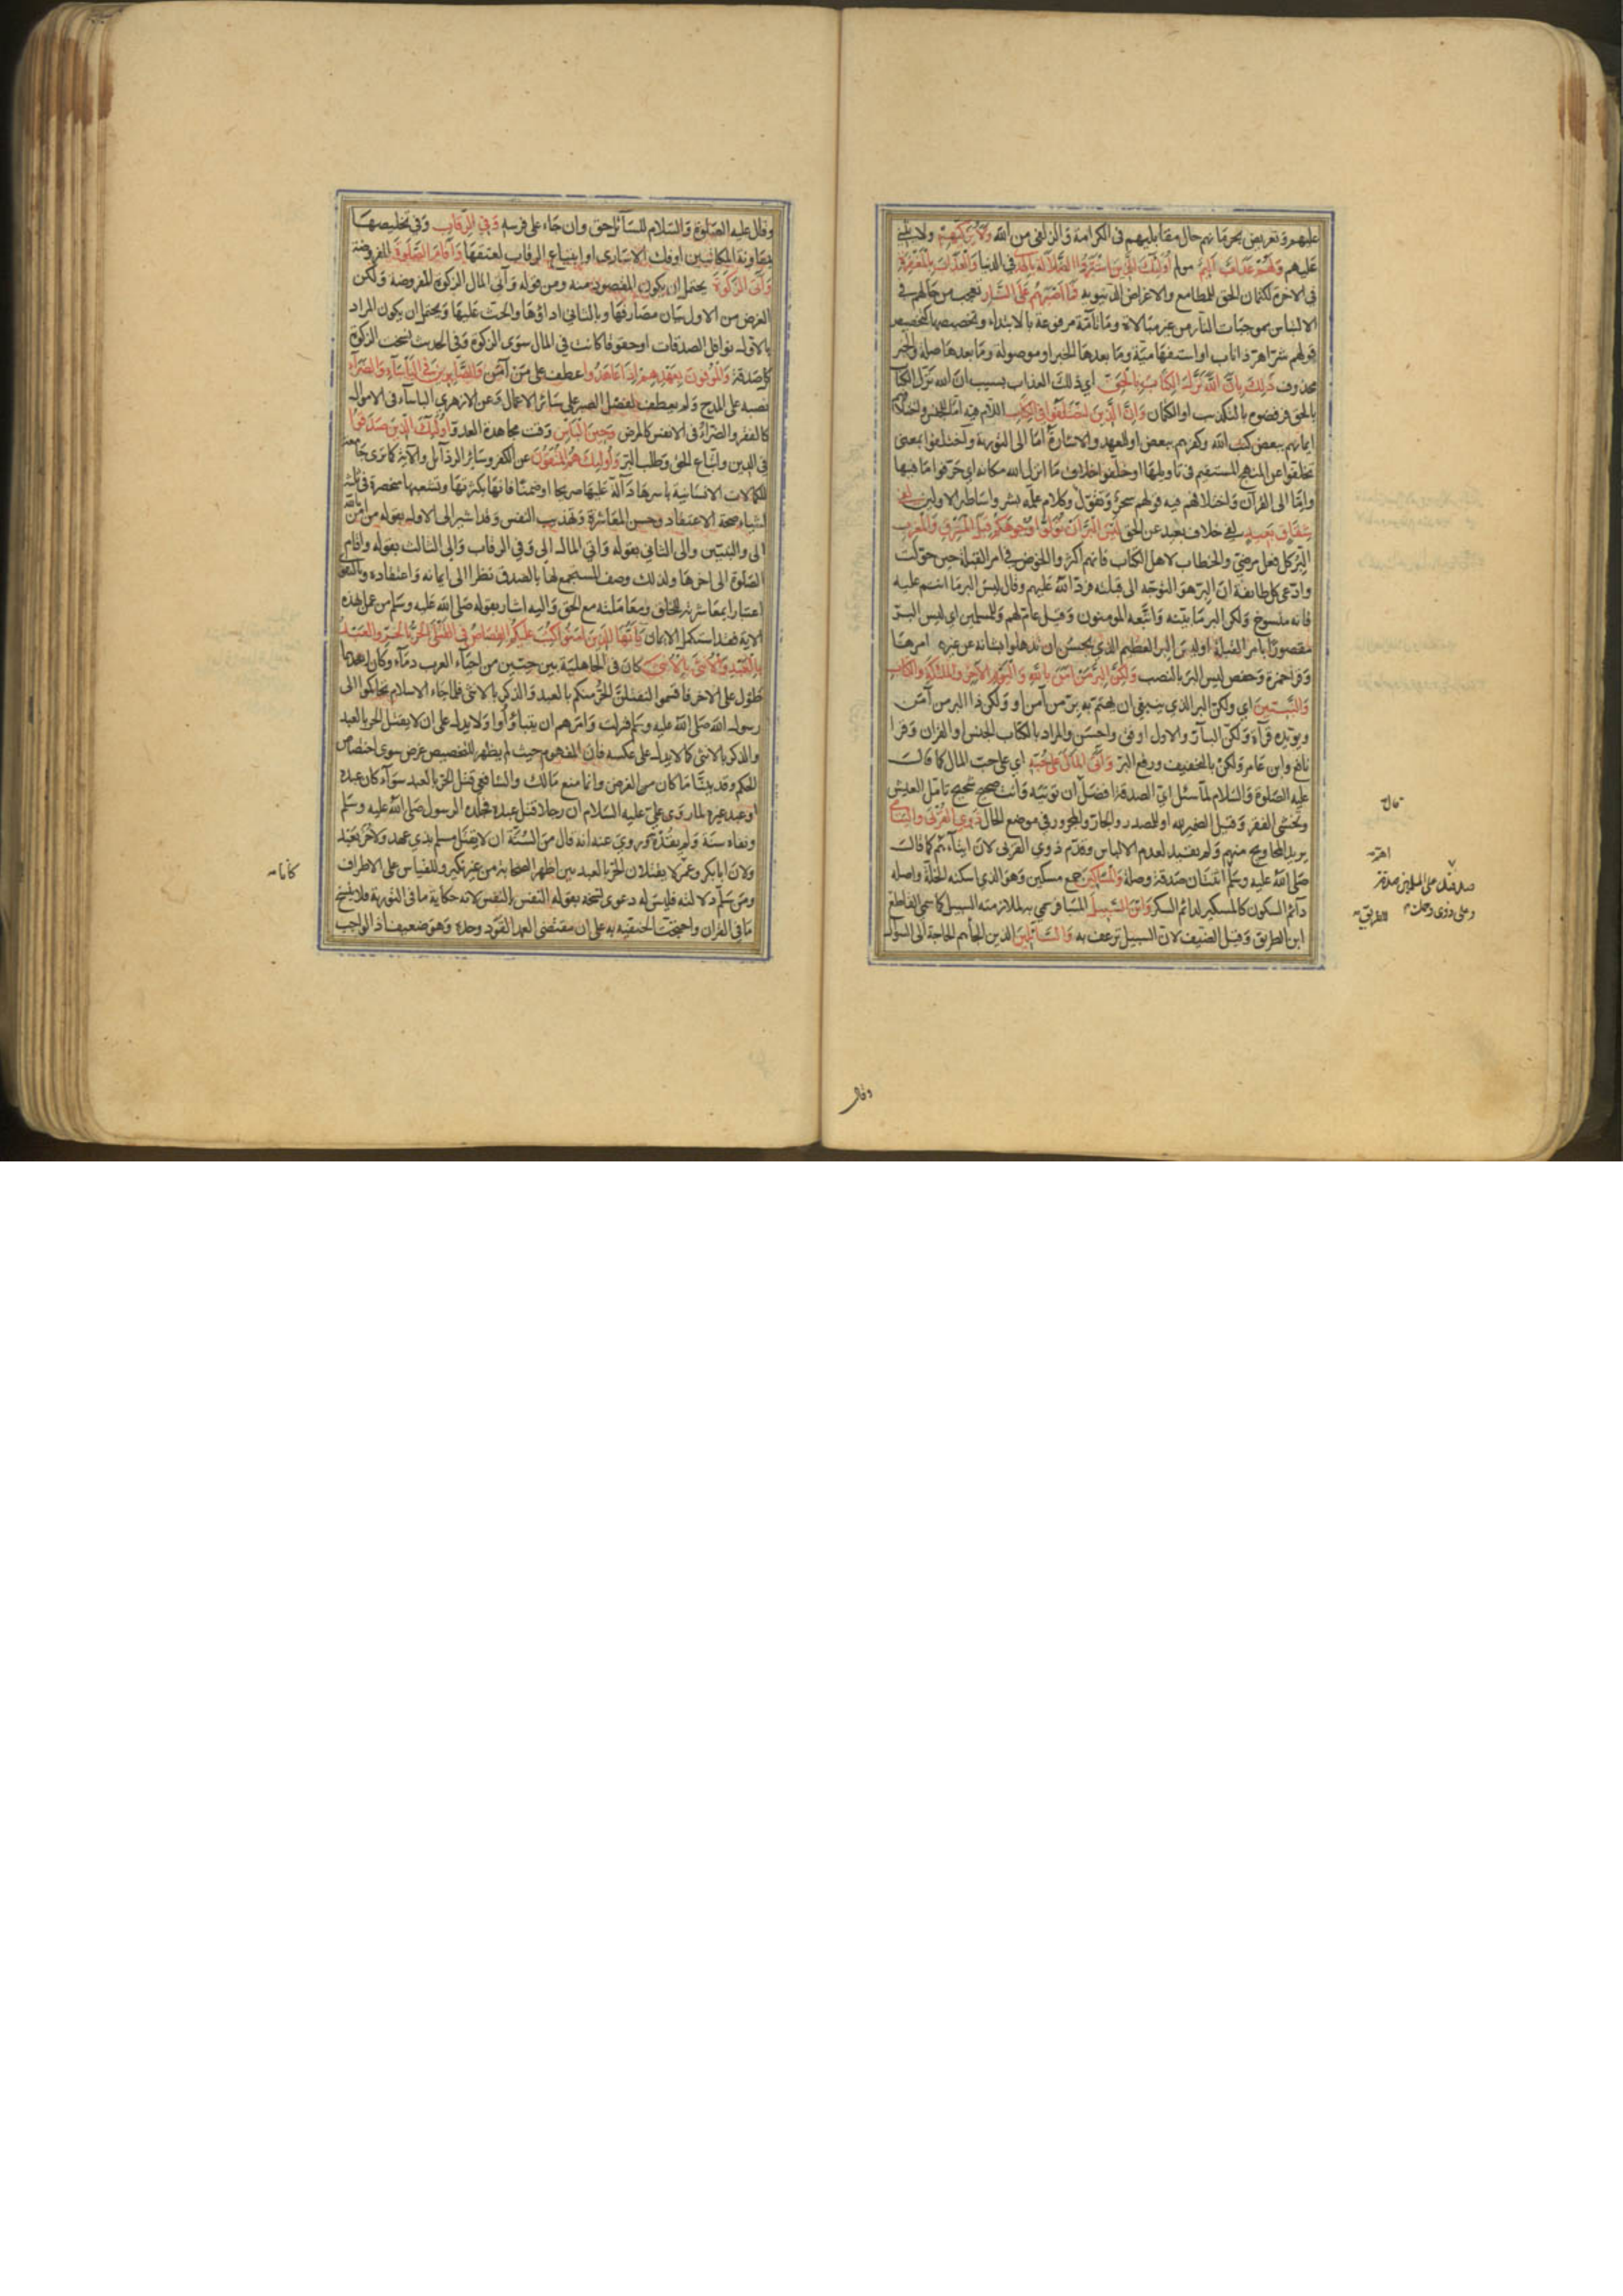 عليهم وتعريض بحرمانهم حال مقابليهم في الكرامة والزلفى من الله ولا يزكيهم ولا يثني
عليهم ولهم عذاب اليم مولم أولئك الذين اشتروا الضلالة بالهدى في الدنيا والعذاب بالمغفرة
في الاخرة لكتمان الحق للمطامع والاغراض الدنيويه فما اصبرهم على النار تعجب من حالهم في
الالتباس بموجبات النار من غير مبالاة وما تامّة مرفوعة بالابتداء وتخصيصها كتخصيص
قولهم شرّ اهرّ ذا ناب او استفهاميّة وما بعدها الخبر او موصولة وما بعدها صلة والخبر
محذوف ذلك بان الله نزّل الكتاب بالحق اي ذلك العذاب بسبب ان الله نزل الكتاب
بالحق فرفضوه بالتكذيب او الكتمان وان الذين اختلفوا في الكتاب اللام فيه امّا للجنس واختلافهم
ايمانهم ببعض كتب الله وكفرهم ببعض او للعهد والاشارة امّا الى التورية واختلفوا بمعنى
تخلفوا عن المنهج المستقيم في تاويلها او خلّفوا خلاف ما انزل الله مكانه اي حرّفوا ما فيها
وامّا الى القرآن واختلافهم فيه قولهم سحر وتقوّل وكلام علّمه بشر واساطير الاولين لفي
شقاق بعيد لفي خلاف بعيد عن الحق ليس البر ان تولوا وجوهكم قبل المشرق والمغرب
البِرّ كل فعل مرضيّ والخطاب لاهل الكتاب فانهم اكثروا الخوض في امر القبلة حين حوّلت
وادّعى كل طائفة ان البِرّ هو التوجّه الى قبلته فردّ الله عليهم وقال ليس البر ما انتم عليه
فانه منسوخ ولكن البر ما بيّنه واتّبعه المومنون وقيل عامّ لهم وللمسلمين اي ليس البرّ
مقصورًا بامر القبلة او ليس البر العظيم الذي يحسن ان تذهلوا بشانه عن غيره امرها
وقرا حمزة وحفص ليس البرّ بالنصب ولكن البر من امن بالله واليوم الاخر والملئكة والكتاب
والنبيين اي ولكن البر الذي ينبغي ان يهتمّ به برّ من آمن او ولكن ذا البر من آمن
ويويّده قرآءة ولكن البارّ والاول اوفق واحسن والمراد بالكتاب الجنس او القرآن وقرا
نافع وابن عامر ولكن بالتخفيف ورفع البرّ وآتى المال على حبّه اي على حب المال كما قال
عليه الصلوة والسلام لمّا سئل ايّ الصدقة افضل أن توتيه وانت صحيح شحيح تامل العيش
وتخشى الفقر وقيل الضمير لله او للمصدر والجارّ والمجرور في موضع الحال ذوي القربى واليتامى
يريد المحاويج منهم ولم يقيد لعدم الالباس وقدّم ذوي القربى لان ايتآءهم كما قال
صلى الله عليه وسلم اثنتان صدقة وصلة والمساكين جمع مسكين وهو الذي اسكنه الخلّة واصله
دائم السكون كالمسكير لدائم السكر وابن السبيل المسافر سمي به لملازمته السبيل كما سمي القاطع
ابن الطريق وقيل الضيف لان السبيل ترعف به والسائلين الذين الجأهم الحاجة الى السوال
قال
صدقتك على المسلمين صدقة
وعلى ذوي رحمك
الطريق
وقال
وقال عليه الصلوة والسلام للسآئل حق وان جاء على فرسه وفي الرقاب وفي تخليصها
بمعاونة المكاتبين او فك الاسارى او ابتياع الرقاب لعتقها واقام الصلوة المفروضة
وآتى الزكوة يحتمل ان يكون المقصود منه ومن قوله وآتى المال الزكوة المفروضة ولكن
الغرض من الاول بيان مصارفها وبالثاني اداؤها والحث عليها ويحتمل ان يكون المراد
بالاول نوافل الصدقات او حقوقا كانت في المال سوى الزكوة وفي الحديث نسخت الزكوة
كل صدقة والموفون بعهدهم اذا عاهدوا عطف على من آمن والصابرين في البأسآء والضرّآء
نصبه على المدح ولم يعطف لفضل الصبر على سائر الاعمال وعن الازهري الباسآء في الاموال
كالفقر والضرّاء في الانفس كالمرض وحين البأس وقت مجاهدة العدو اولئك الذين صدقوا
في الدين واتّباع الحق وطلب البر واولئك هم المتقون عن الكفر وسائر الرذآئل والآية كما ترى جامعة
للكمالات الانسانية باسرها دآلّة عليها صريحا او ضمنًا فانها بكثرتها وتشعبها منحصرة في ثلثة
اشياء صحة الاعتقاد وحسن المعاشرة وتهذيب النفس وقد اشير الى الاول بقوله من آمن بالله
الى والنبيّين والى الثاني بقوله وآتى المال الى وفي الرقاب والى الثالث بقوله واقام
الصلوة الى اخرها ولذلك وصف المستجمع لها بالصدق نظرا الى ايمانه واعتقاده وبالتقوى
اعتبارا بمعاشرته للخلق ومعاملته مع الحق واليه اشار بقوله صلى الله عليه وسلم من عمل بهذه
الاية فقد استكمل الايمان يا ايها الذين امنوا كتب عليكم القصاص في القتلى الحر بالحر والعبد
بالعبد والانثى بالانثى كان في الجاهلية بين حيّين من احياء العرب دمآء وكان لاحدهما
طول على الاخر فاقسموا لنقتلنّ الحر منكم بالعبد والذكر بالانثى فلما جاء الاسلام تحاكموا الى
رسول الله صلى الله عليه وسلم فنزلت وامرهم ان يتباوؤا ولا يدل على ان لا يقتل الحر بالعبد
والذكر بالانثى كما لا يدل على عكسه فان المفهوم حيث لم يظهر للتخصيص غرض سوى اختصاص
الحكم وقد بيّنّا ما كان من الغرض وانما منع مالك والشافعي قتل الحر بالعبد سوآء كان عبده
او عبد غيره لما روى عليّ عليه السلام ان رجلا قتل عبده فجلده الرسول صلى الله عليه وسلم
ونفاه سنة ولم يقده به وروي عنه انه قال من السنّة ان لا يقتل مسلم بذي عهد ولا حر بعبد
ولان ابا بكر وعمر كانا لا يقتلان الحر بالعبد بين اظهر الصحابة من غير نكير وللقياس على الاطراف
ومن سلّم دلالته فليس له دعوى نسخه بقوله النفس بالنفس لانه حكاية ما في التورية فلا ينسخ
ما في القران واحتجّت الحنفية به على ان مقتضى العمد القود وحده وهو ضعيف اذ الواجب
كانا